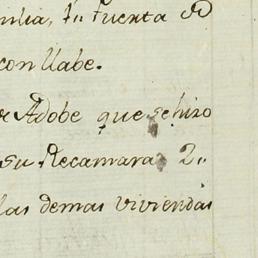 milia, 1,, Puerta D
con llabe.
r Adobe que se hizo
su Recamara 2,,
las demas viviendas